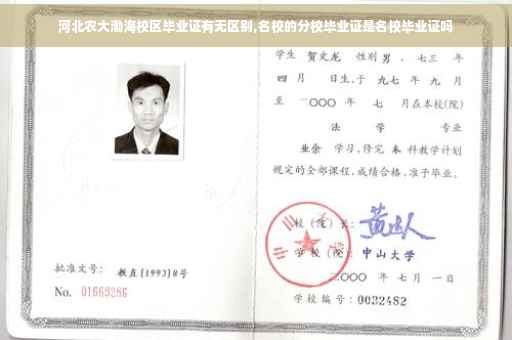 河北农大渤海校区毕业证有无区别,名校的分校毕业证是名校毕业证吗
学生 贺文龙 性别 男 、七三 年
四 月 日生,于 九七 年 九 月
至 二〇〇〇 年 七 月在本校(院)
法 学 专业
业余 学习,修完 本 科教学计划
规定的全部课程,成绩合格,准予毕业。
校 (院) 长:
学 校 (院): 中山大学
二〇〇〇 年 七 月 一 日
学校编号: 0032482
批准文号: 教直[1993]8号
No. 01669286